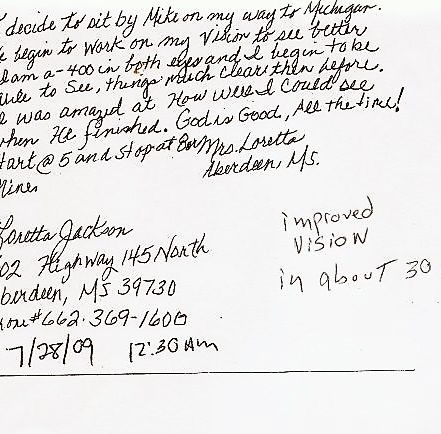 decide to sit by Mike on my way to Michigan.
begin to work on my Vision to see better
I am a -400 in both eyes and I begin to be
able to See, things much clear then before.
I was amazed at How well I could see
when He finished. God is Good, All the time!
Start @ 5 and stop at 8 or Mrs. Loretta
Aberdeen, MS.
Mines
Loretta Jackson
02 Highway 145 North
Aberdeen, MS 39730
Phone # 662-369-1600
7/28/09 12:30 Am
improved
VISION
in about 30